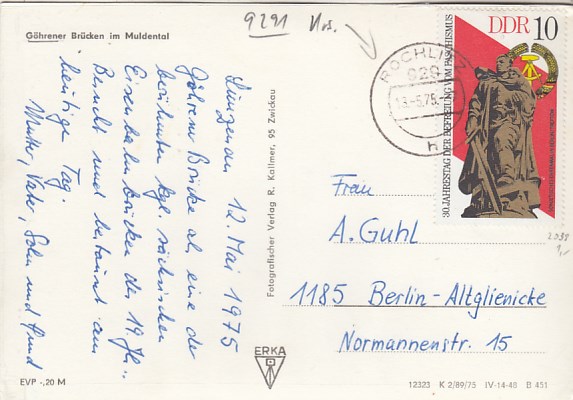 Göhrener Brücken im Muldental
9291 Nrs.
Lunzenau 12. Mai 1975
Göhrener Brücke als eine der
berühmten kgl. sächsischen
Eisenbahnbrücken des 19. Jh.
Besucht und bestaunt am
heutigen Tag.
Mutter, Vater, Sohn und Hund
EVP -,20 M
Fotografischer Verlag R. Kallmer, 95 Zwickau
ERKA
ROCHLITZ
929
13.-5.75.
h
DDR 10
30. JAHRESTAG DER BEFREIUNG VOM FASCHISMUS
Frau
A. Guhl
1185 Berlin-Altglienicke
Normannenstr. 15
12323 K 2/89/75 IV-14-48 B 451